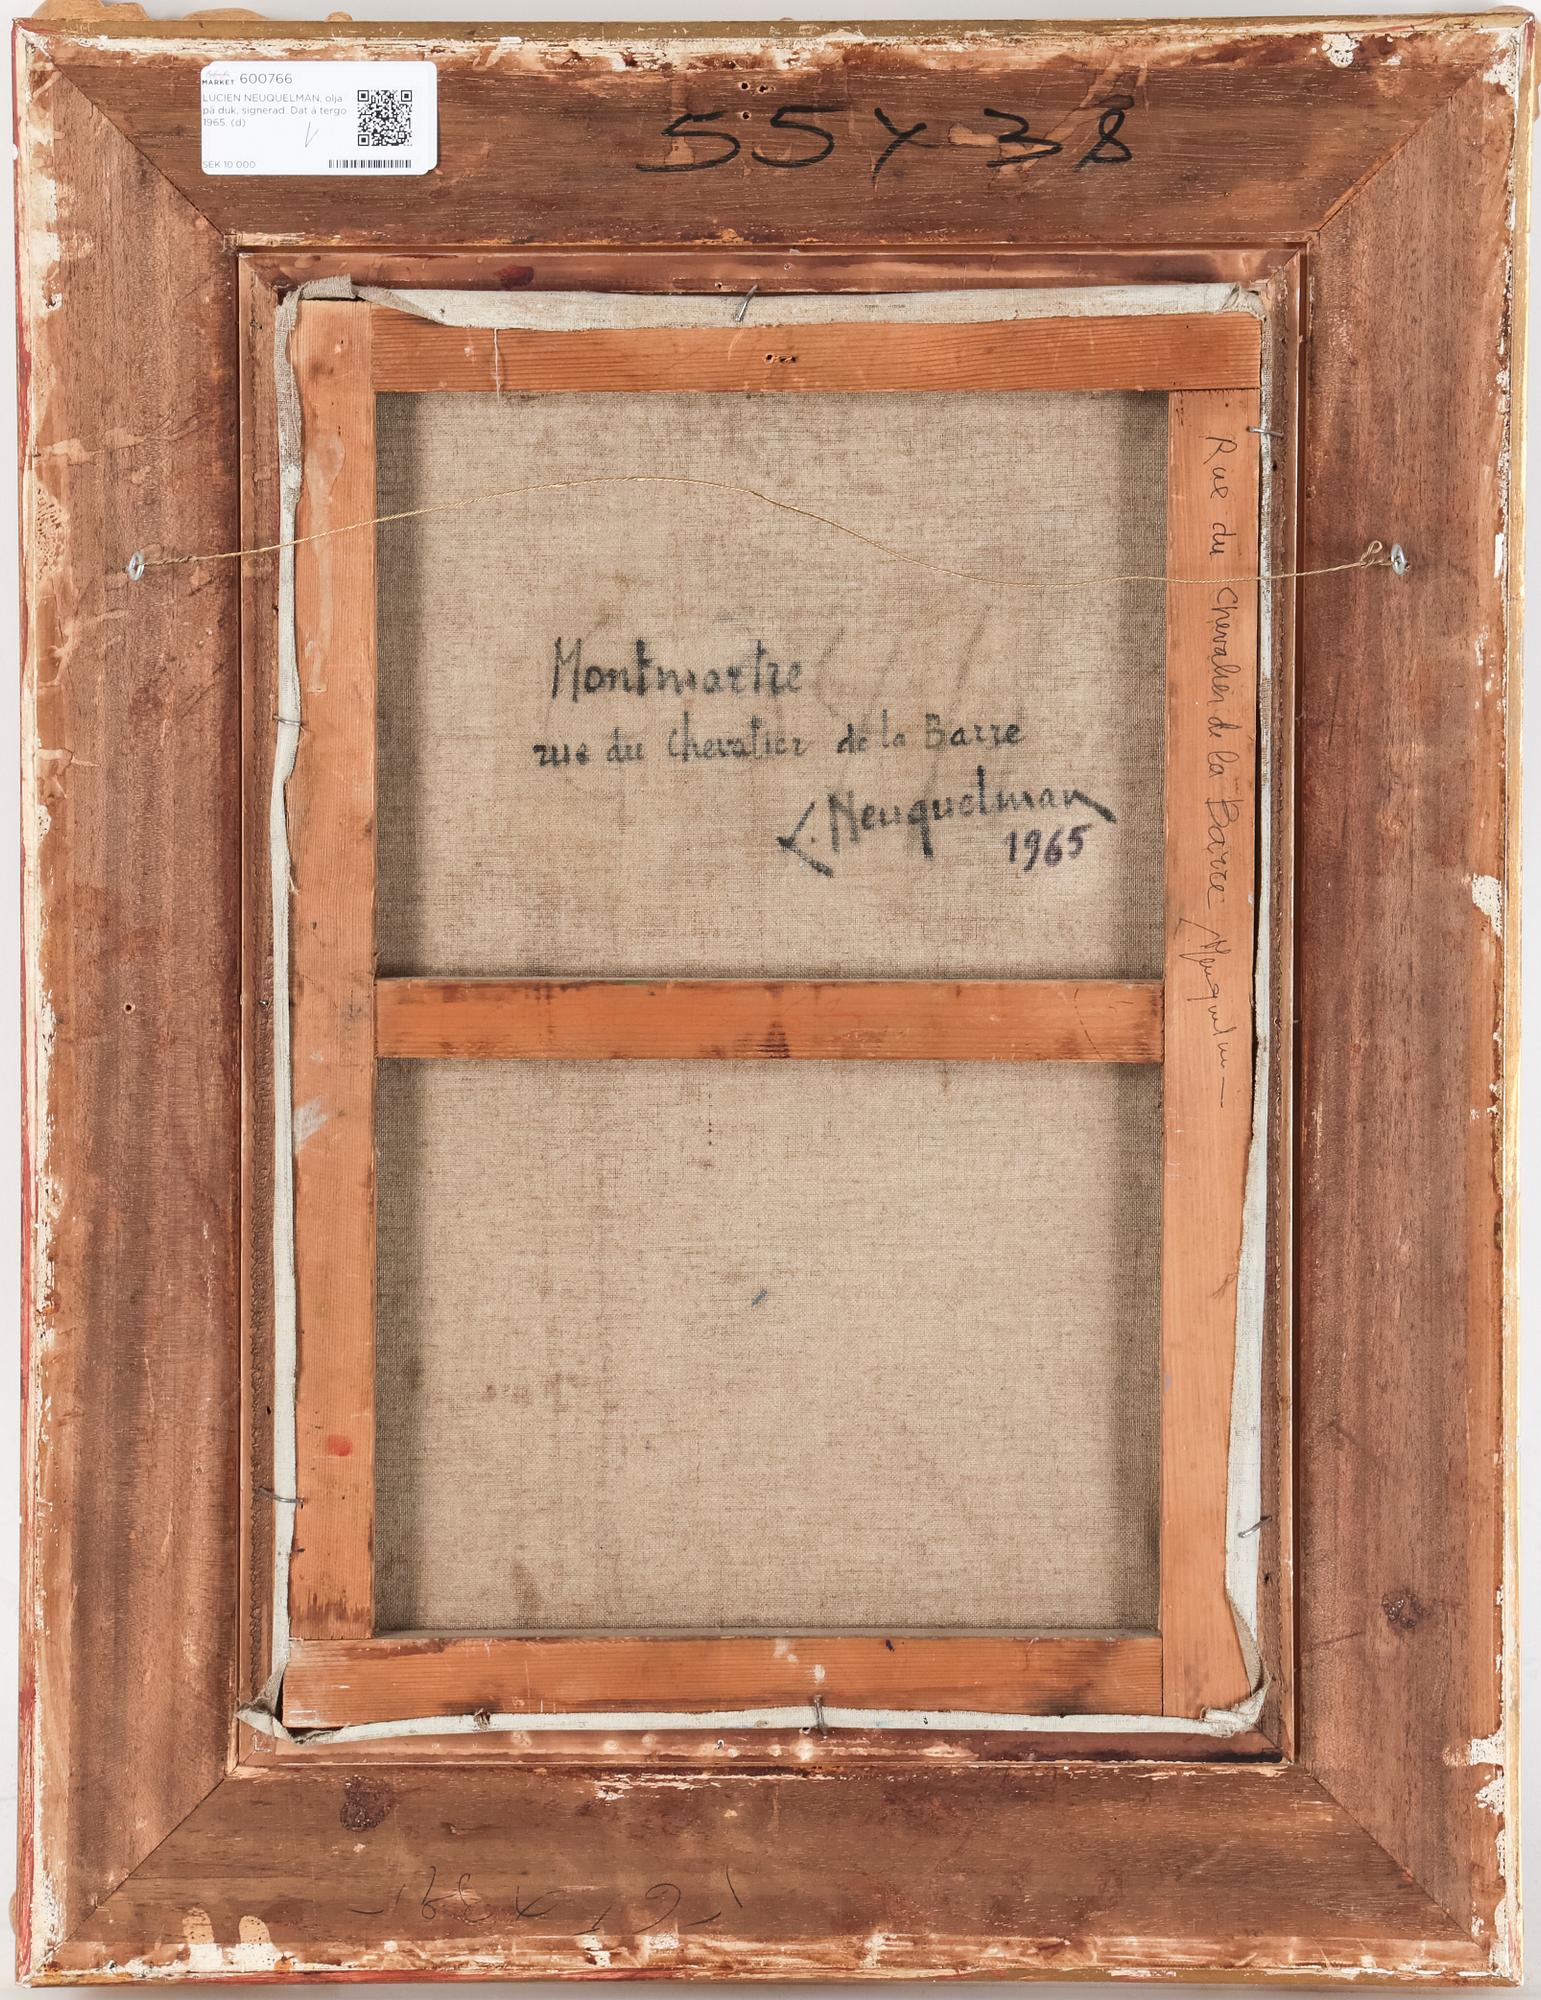 MARKET 600766
LUCIEN NEUQUELMAN, olja
på duk, signerad. Dat á tergo
1965. (d)
SEK 10 000
55 x 38
Montmartre
rue du Chevalier de la Barre
L. Neuquelman
1965
Rue du Chevalier de la Barre Neuquelman